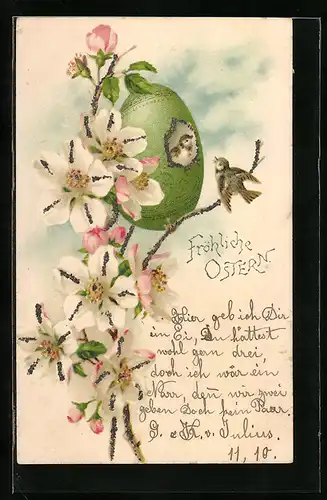 Fröhliche
OSTERN
Hier geb ich Dir
ein Ei, Du hättest
wohl gern drei,
doch ich wär ein
Narr, den wir zwei
geben doch kein Paar.
G. e K. v. Julius.
11, 10.